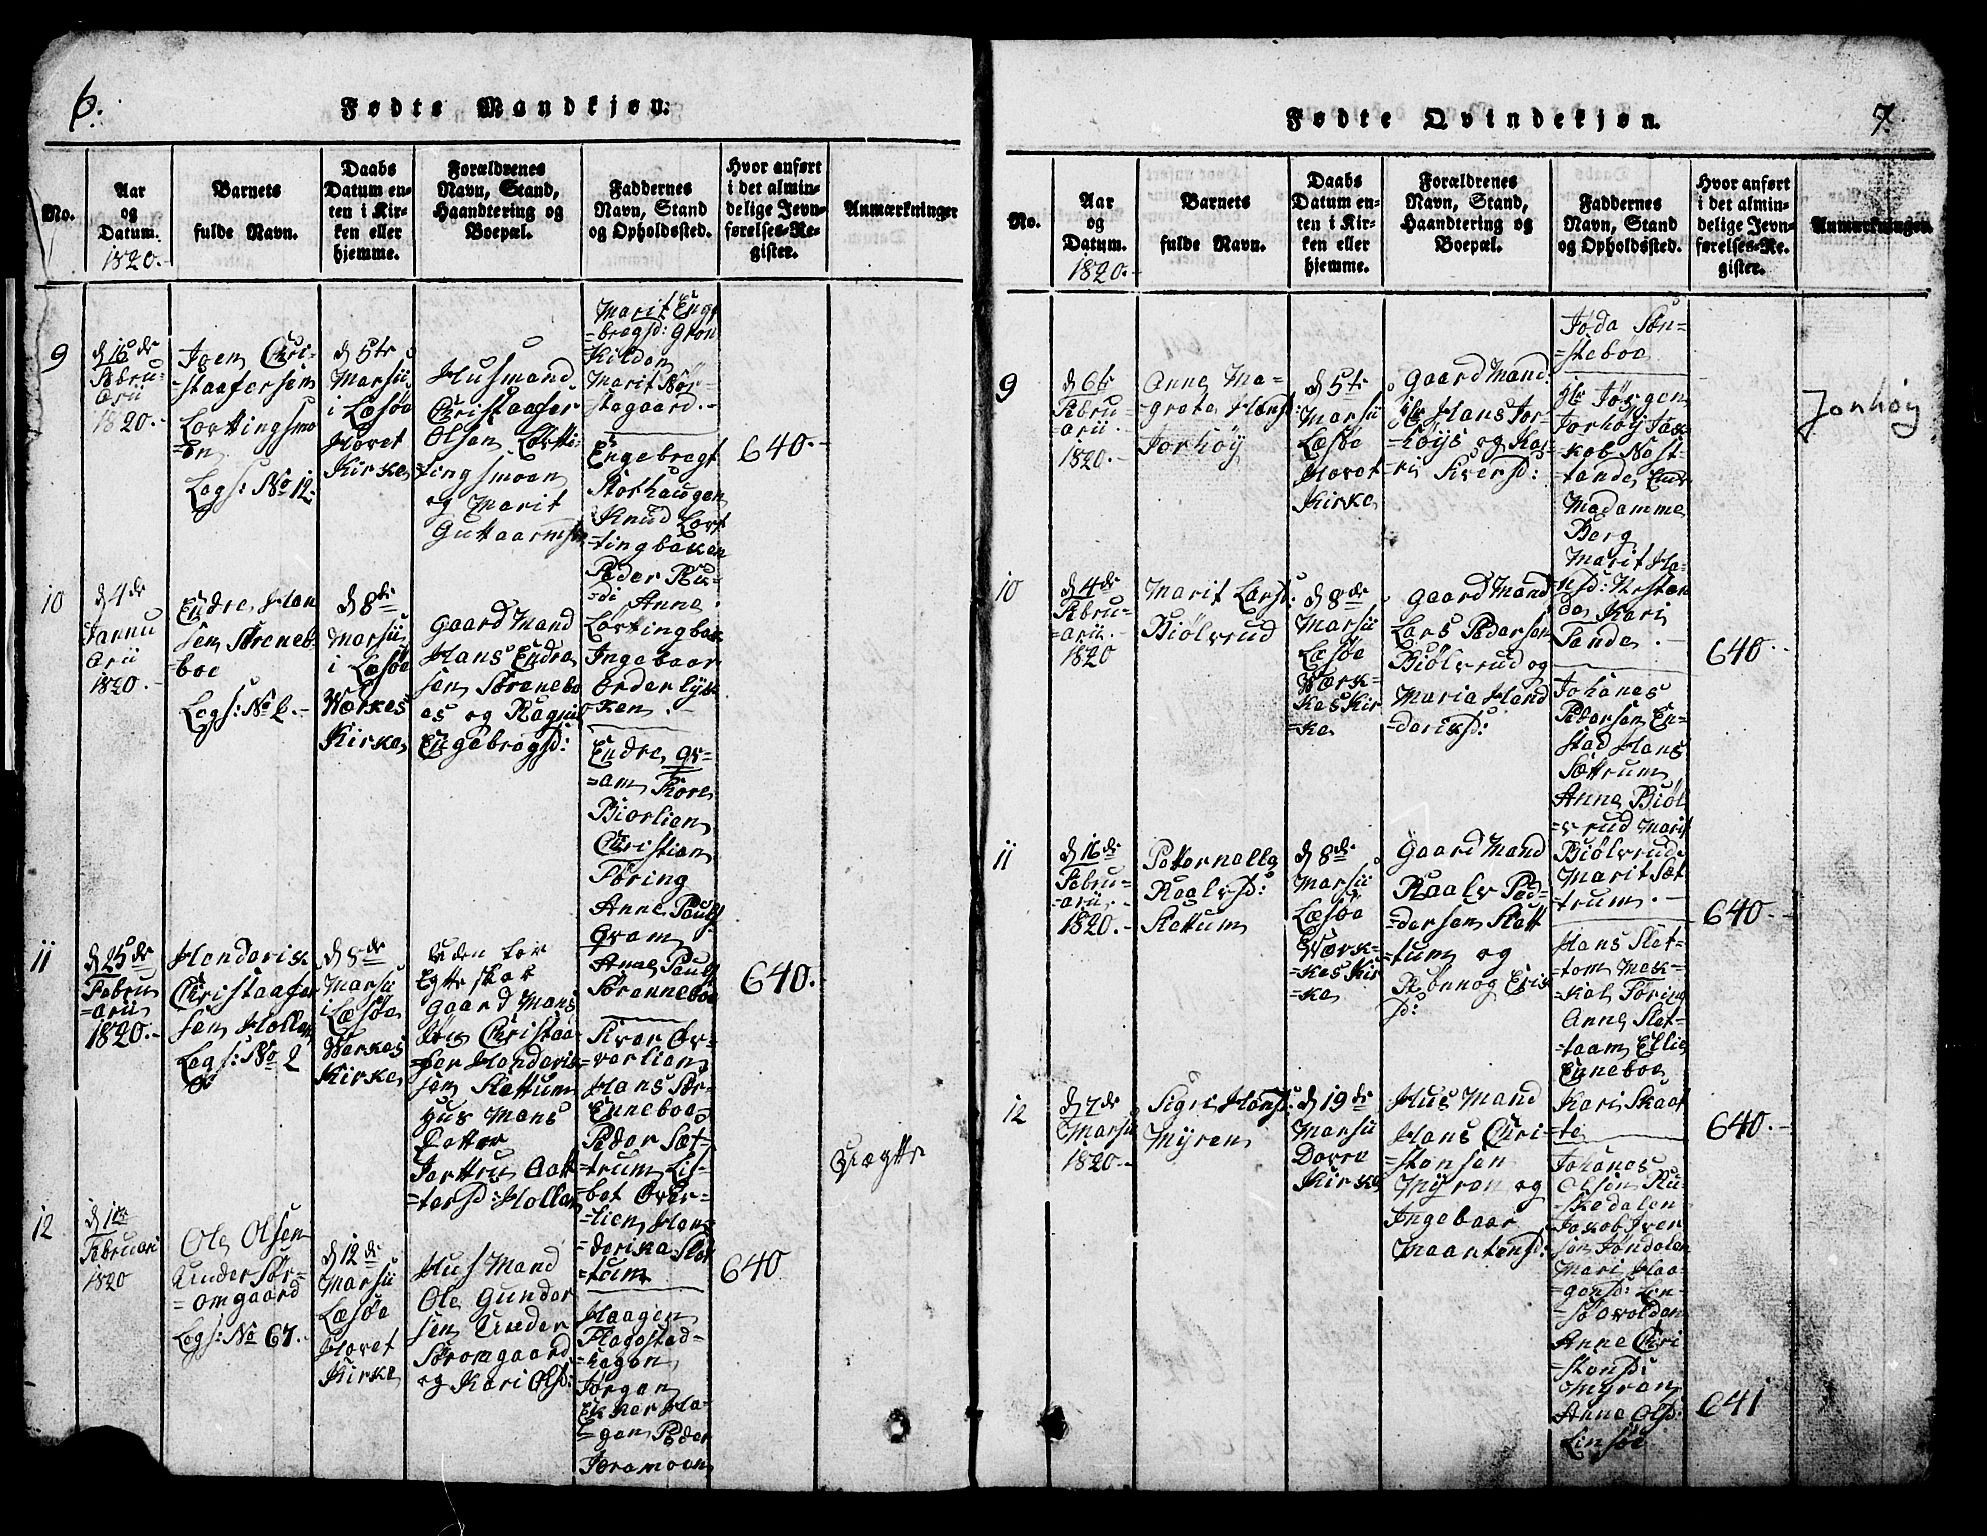 6.
Fødte Mandkjøn.
No.
Aar
og
Datum.
1820.-
Barnets
fulde Navn.
Daabs
Datum en-
ten i Kir-
ken eller
hjemme.
Forældrenes
Navn, Stand,
Haandtering og
Boepæl.
Faddernes
Navn, Stand
og Opholdssted.
Hvor anført
i det almin-
delige Jevn-
førelses-Re-
gister.
Anmærkninger
9
Febru
arii
1820.-
Joen Chri-
=staafersen
Lortingsmo
=en
Logs: No 12.
d 5te
Marsii
i Læsøe
Hovet
Kirke
Husmand
Christaafer
Olsen Lortti-
=tingsmoen
og Marit
Marit Eng
=bregsd: Gron
Kilden
Marit Nør-
=stegaard.-
Engebregt
Stothaugen
Knud Lort
=tingbaken
Peder
Anne
Lortingbak
Ingebaar
=ken.
640.-
10
d 4de
Jannu
arii
1820.-
Endre Han
sen Sørenebo
=boe
Logs: No 2.-
d 8de
Marsii
i Læsøe
Værkes
Kirke
Gaard Mand
Hans Endre
sen Sørenebo
es og Ragnil
Engebregsd:
Endre Qv-
=am Tore
Biorlien
Christian
Tøring
Anne Pauls
Qvam
Anne Pauls
Sørenneboe
640.
11
d 25de
Febru
=arii
1820.-
Henderik
Christaafer
sen Hollen
Logs: No 2
d 8de
Marsii
i Læsøe
Værkes
Kirke
uden for
Egteskab
Gaard Mans
Søn Christaa-
=fer Henderik-
sen Slettum
Hus Mans
Datter
Jarttru Aat
=tersd: Hollen
Sivar Øv-
=verlien
Hans Sør-
=Enneboe
Peder Sæt-
=trum Lis-
=bet Over-
=lien Hen-
=derika Slet
=tum
Uægtte
12
d 1de
Februari
1820
Ole Olsen
Under Sør-
=omgaard
Logs: No 67.-
d 12de
Marsii
Læsøe
Hovet
Kirke
Hus Mand
Ole Gunder
sen Under
Søromgaard
og Kari Olsd:
Haagen
Flagestad-
=hagen
Jørgen
Eknær Ha-
=gen Peder
Joramoen
640
7.
Fødte Qvindekjøn.
No.
Aar
og
Datum.
1820.-
Barnets
fulde Navn.
Daabs
Datum en-
ten i Kir-
ken eller
hjemme.
Forældrenes
Navn, Stand,
Haandtering og
Boepæl.
Faddernes
Navn, Stand
og Opholdssted.
Hvor anført
i det almin-
delige Jevn-
førelses-Re-
gister.
Anmærkninger.
9
d 6te
Febru-
=arii.
1820.-
Anne Ma-
=grete Hansd:
Jorhöy
d 5te
Marsii
Læsøe
Hovet
Kirke
Gaard Mand.
Hr Hans Jor-
=höys og Ka-
=ri Siversd:
Jøda Søn-
=steboe
Hr Jørgen
Jorhöy Jak-
=kob Nøst-
=tande
Madamme
Berg
Marit Ha-
=nsd:
Kari
Tande.-
Jonhoy
10
d 4de
Febru-
=arii.
1820
Marit Larsd:
Biölvrud
d 8de
Marsii
Læsøe
Værk-
=kes Kir
=ke
Gaard Mand
Lars Pedersen
Biölvrud og
Maria Hend
=deriksd:
Johanes
Pedersen En-
=stad Hans
Sættrum
Anne Biöl
=vrud Marit
Biölvrud
Marit Sæt
=trum.-
640.-
11
d 16de
Febru-
=arii.
1820.-
Petternelle
Raalvsd:
Slettum
d 8de
Marsii
Læsøe
Værk-
=kes Kir
=ke
Gaard Mand
Raalv Ped-
=dersen Slett
=tum og
Rønnog Erik
sd:
Hans Slet-
=tom Mek-
=kel Töring
Anne Slet-
=taam Ellie
Enneboe
640.-
12
d 7de
Marsii
1820.-
Sigri Hansd:
Myren
d 19de
Marsii
Dovre
Kirke
Hus Mand
Hans Chri-
=stensen
Myren og
Ingebaar
Maartensd:
Kari Skaat
=te
Johanes
Olsen Ru-
=skedalen
Jakob Iver
sen Jöndalen
Mari Haa-
=gensd: Len-
=söevolden
Anne Chri
=stensd:
Myren
Anne Olsd:
Linsöe
640.-
641